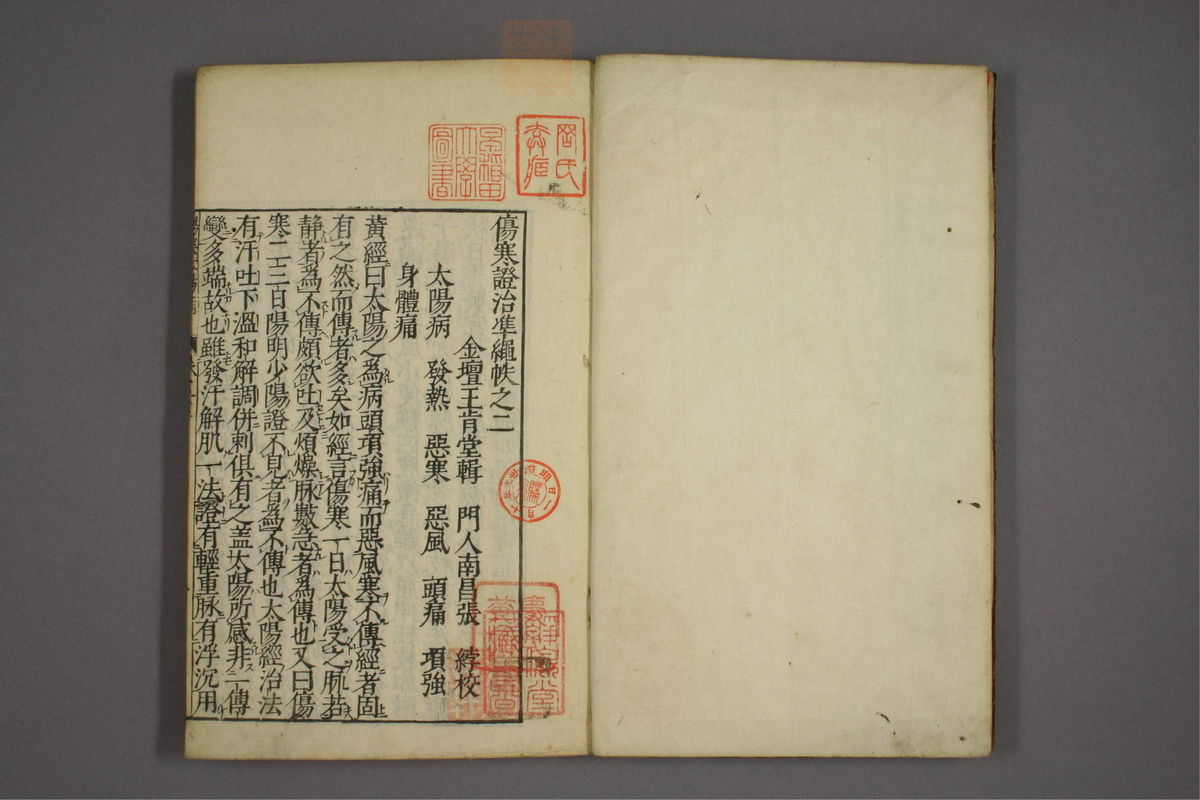 傷寒證治準繩帙之二
金壇王肯堂輯　門人南昌張　綍校
太陽病　發熱　惡寒　惡風　頭痛　項強
身體痛
黃經曰太陽之爲病頭項強痛而惡風寒不傳經者固
有之然而傳者多矣如經言傷寒一日太陽受之脈若
靜者爲不傳頗欲吐及煩燥脉數急者爲傳也又曰傷
寒二三日陽明少陽證不見者爲不傳也太陽經治法
有汗吐下溫和解調併刺俱有之盖太陽所感非一傳
變多端故也雖發汗解肌一法證有輕重脉有浮沉用